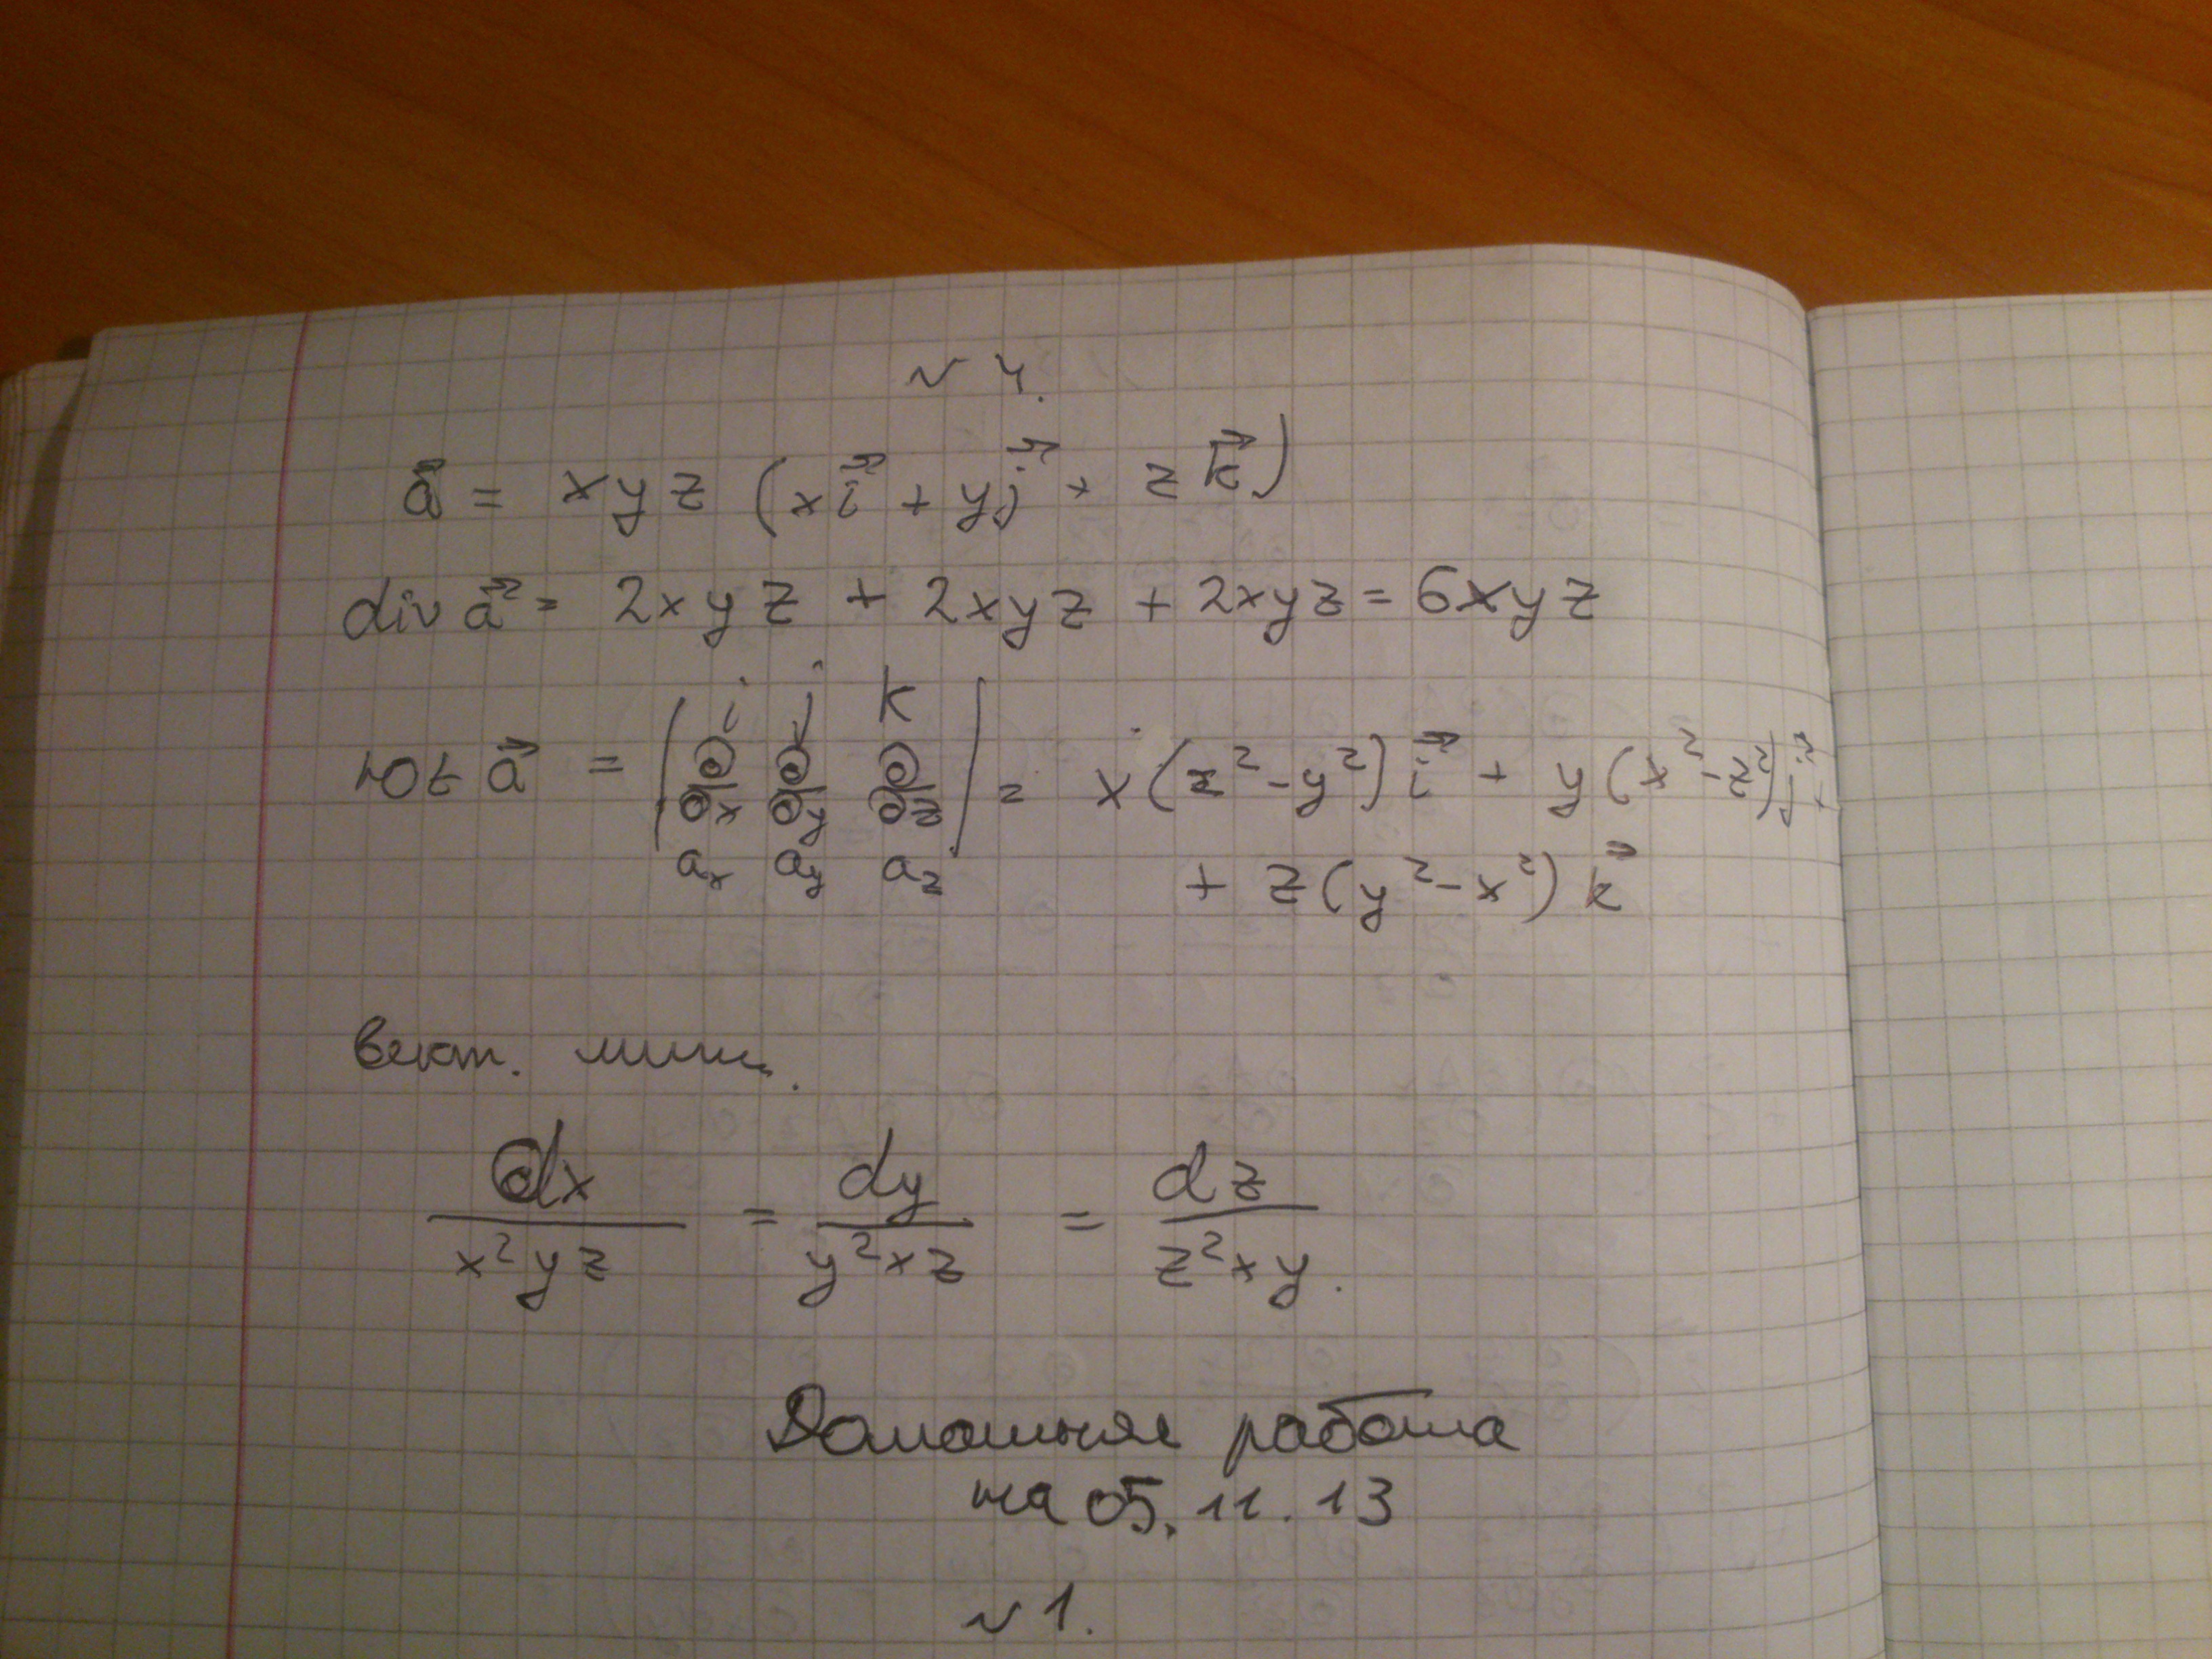 № 4.
a⃗ = xyz (xi⃗ + yj⃗ + zk⃗)
div a⃗ = 2xyz + 2xyz + 2xyz = 6xyz
i j k
rot a⃗ = | ∂/∂x ∂/∂y ∂/∂z | = x(z²-y²)i⃗ + y(x²-z²)j⃗ +
aₓ a_y a_z + z(y²-x²)k⃗
вект. линии.
dx/x²yz = dy/y²xz = dz/z²xy.
Домашняя работа
на 05.11.13
№ 1.